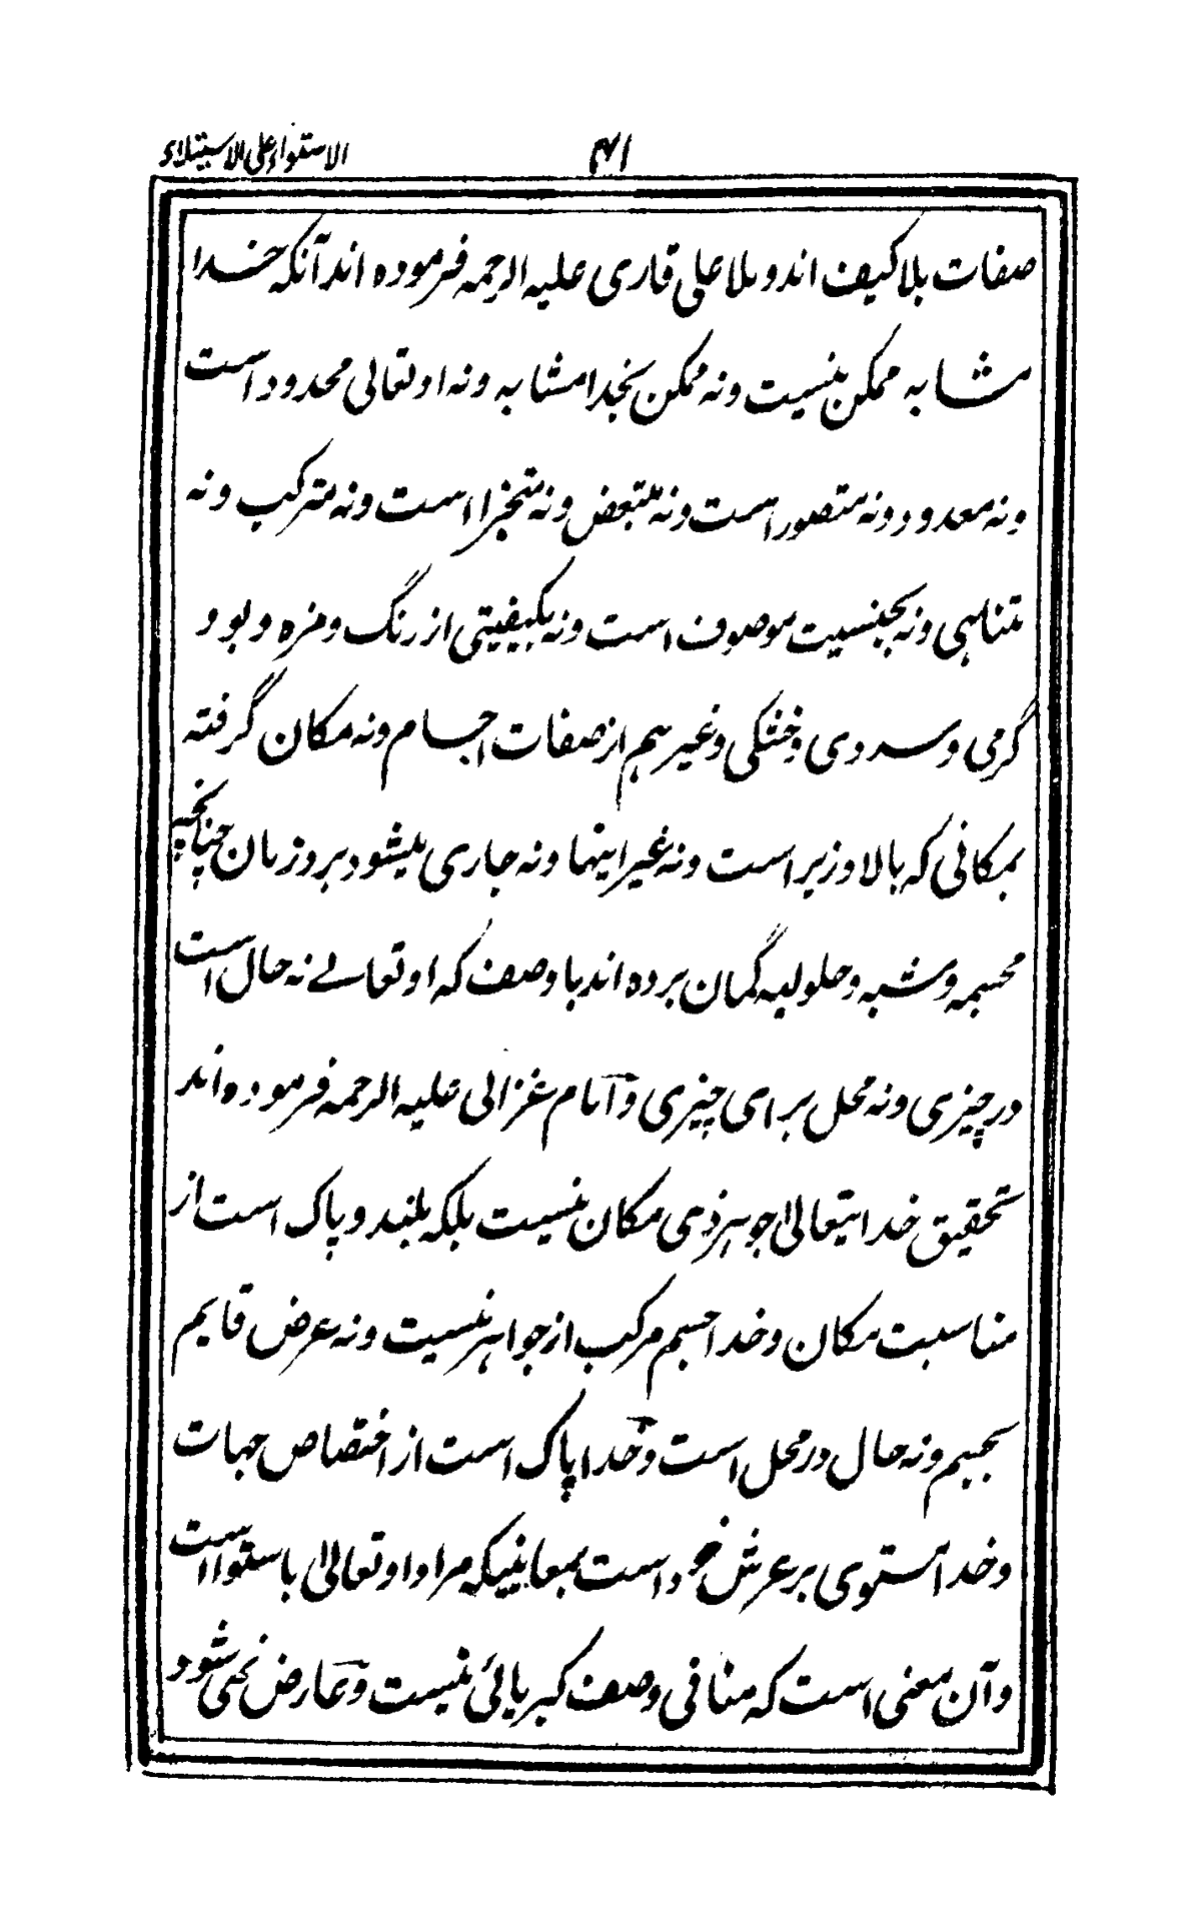 الاستواء علی الاستیلاء
صفات بلا کیف اند و ملا علی قاری علیه الرحمه فرموده اند آنکه خدا
مشابه ممکن نیست و نه ممکن بخدا مشابه و نه او تعالی محدود است
و نه معدود و نه متصور است و نه متبعض و نه متجزا است و نه مترکب و نه
متناهی و نه بجنسیت موصوف است و نه بکیفیتی از رنگ و مزه و بو و
گرمی و سردی و خشکی و غیر هم از صفات اجسام و نه مکان گرفته
بمکانی که بالا و زیر است و نه غیر اینها و نه جاری میشود برو زمان چنانچه
مجسمه و مشبه و حلولیه گمان برده اند با وصف که او تعالے نه حال است
در چیزی و نه محل برای چیزی و امام غزالی علیه الرحمه فرموده اند
تحقیق خدا یتعالیٰ جوهر ذی مکان نیست بلکه بلند و پاک است از
مناسبت مکان و خدا جسم مرکب از جواهر نیست و نه عرض قایم
بجسم و نه حال در محل است و خدا پاک است از اختصاص جهات
و خدا مستوی بر عرش خود است بمعانیکه مراد او تعالیٰ باستوا است
و آن معنی است که منافی وصف کبریائی نیست و عارض نمی شود